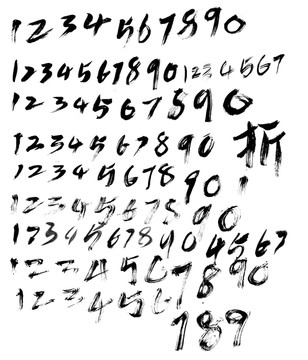 1234567890
1234567890 1234567
1234567890
1234567890 折
1234567890 1
1234567890
1234567890 4567
1234567890
1234567
189